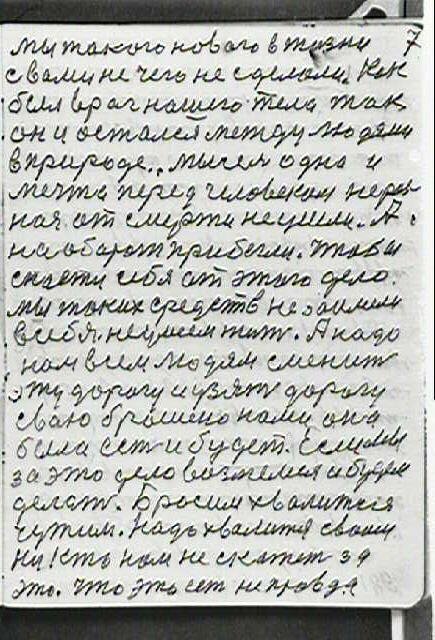 7
мы такого нового в жизни
с вами не чего не сделали. Как
был враг нашего тела так
он и остался между людями
в природе. мысля одна и
мечта перед человеком
ная от смерти неушли. А
на оборот прибегли. Чтобы
спасти себя от этого дело.
мы таких средств не
в себя. неумеем жить. А надо
нам всем людям сменит
эту дорогу и узять дорогу
сваю брошено нами она
была ест и будет. Если мы
за это дело возмемся и будем
делат. Бросим хвалится
чужим. Надо хвалится своим
ни! Кто нам не скажет за
это. Что это ест неправда